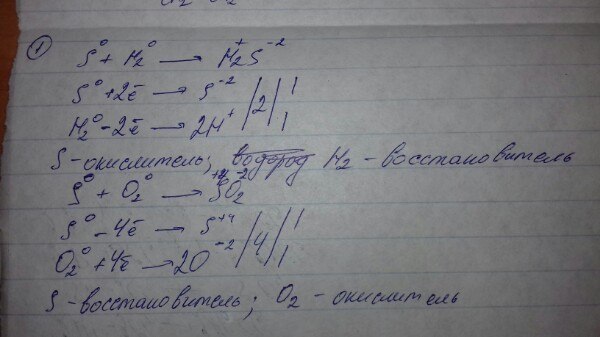 1
S⁰ + H₂⁰ → H₂⁺S⁻²
S⁰ + 2ē → S⁻² /2/ 1
H₂⁰ - 2ē → 2H⁺ 1
S - окислитель; водород H₂ - восстановитель
S⁰ + O₂⁰ → S⁺⁴O₂⁻²
S⁰ - 4ē → S⁺⁴ /4/ 1
O₂⁰ + 4ē → 2O⁻² 1
S - восстановитель; O₂ - окислитель